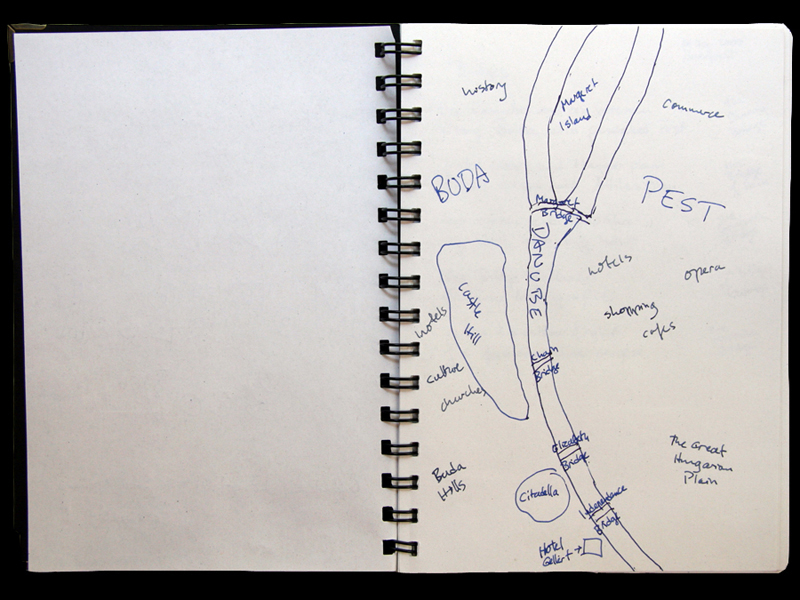 history
Margaret
Island
Commerce
BUDA
PEST
Margaret
Bridge
DANUBE
hotels
opera
shopping
cafes
Castle
Hill
hotels
culture
churches
Chain
Bridge
Elizabeth
Bridge
The Great
Hungarian
Plain
Buda
Hills
Citadella
Independence
Bridge
Hotel
Gellert →